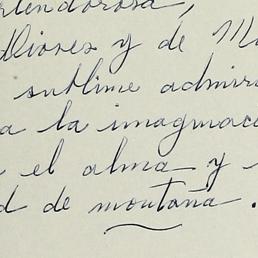 lendorosa,
Dioses y de M
sublime admir
a la imaginac
el alma y
d de montaña.